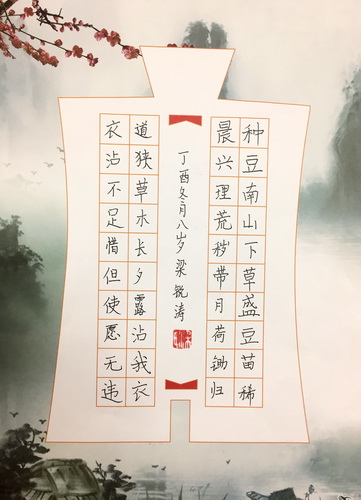 种豆南山下草盛豆苗稀
晨兴理荒秽带月荷锄归
丁酉冬月八岁 梁锐涛
道狭草木长夕露沾我衣
衣沾不足惜但使愿无违